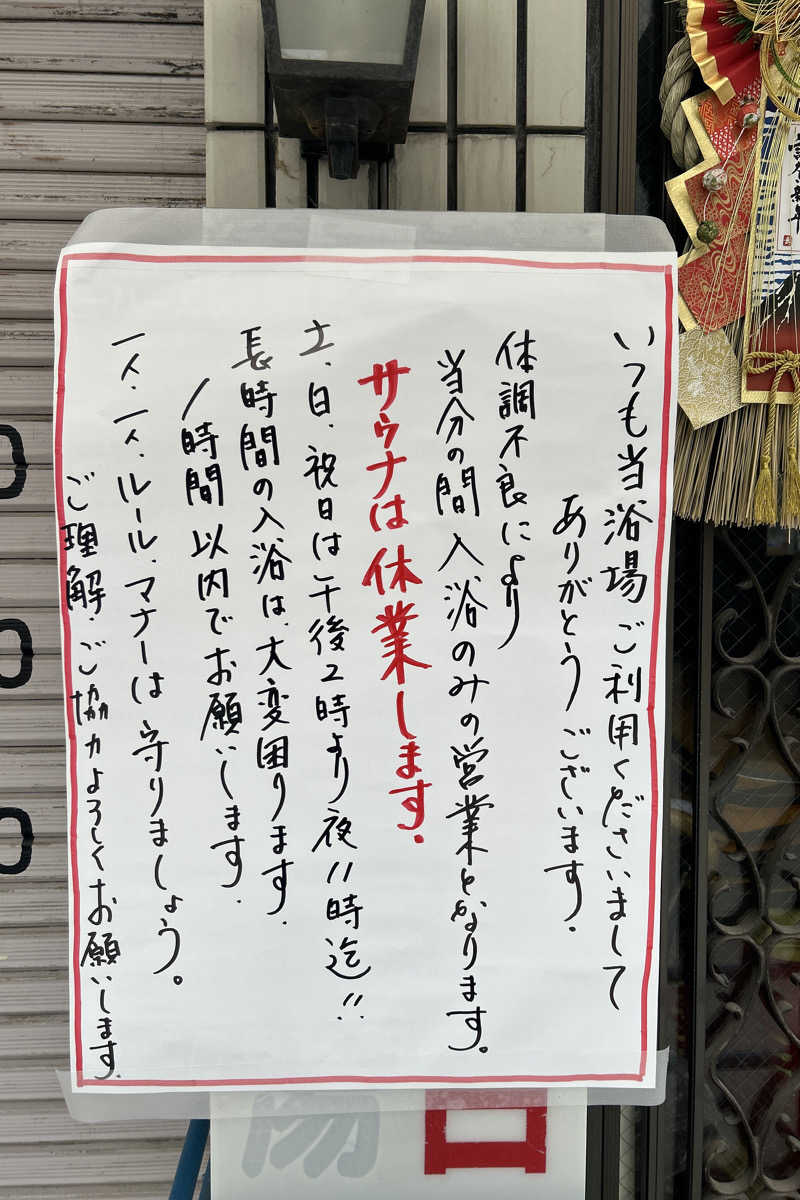 いつも当浴場ご利用くださいまして
ありがとうございます.
体調不良により
当分の間入浴のみの営業となります。
サウナは休業します.
土、日、祝日は午後2時より夜11時迄!!
長時間の入浴は、大変困ります.
1時間以内でお願いします.
一人、一人、ルール、マナーは守りましょう。
ご理解.ご協力よろしくお願いします.